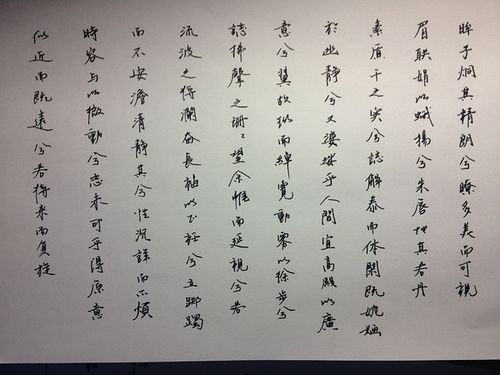 眸子炯其精朗兮瞭多美而可視
眉联娟以蛾揚兮朱唇其若丹
素干之实兮誌解泰而体閑既姽婳
於幽靜兮又婆娑乎人間宜高殿以廣
意兮翼故纵而綽寬動雾以徐步兮
誌拂聲之珊〻望余帷而延視兮若
流波之将瀾奋長袖以正衽兮立踯躅
而不安澹清静其兮性沉詳而不煩
時容与以微動兮志未可乎得原意
似近而既遠兮若将来而复旋